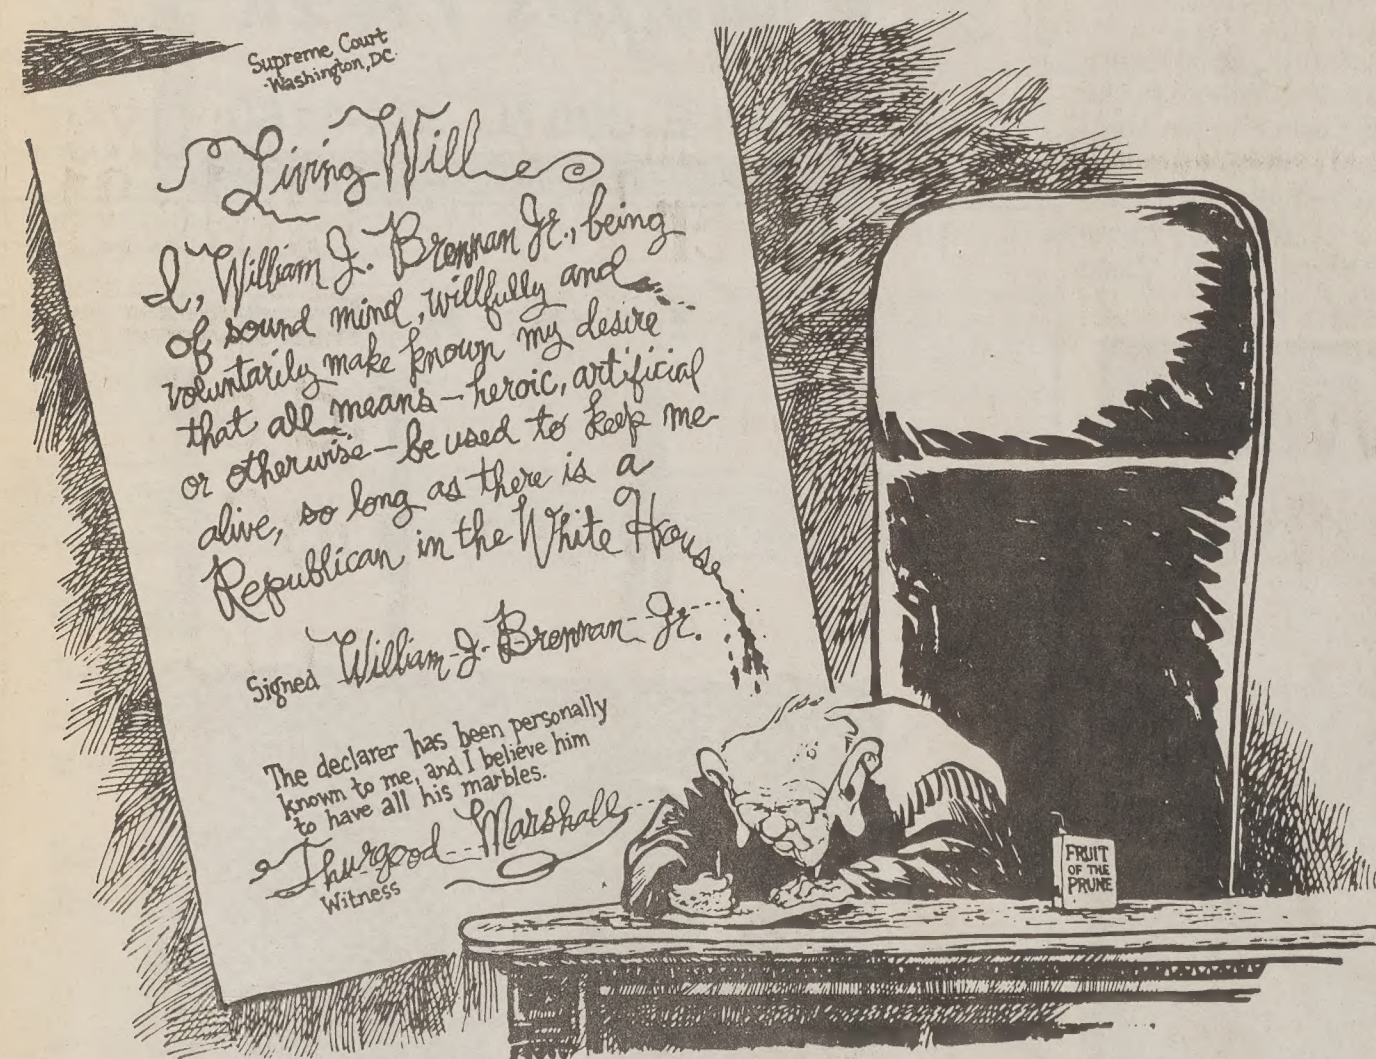 Supreme Court
Washington, DC.
Living Will
I, William J. Brennan Jr., being
of sound mind, willfully and
voluntarily make known my desire
that all means—heroic, artificial
or otherwise—be used to keep me
alive, so long as there is a
Republican in the White House
Signed William J. Brennan Jr.
The declarer has been personally
known to me, and I believe him
to have all his marbles.
Thurgood Marshall
Witness
FRUIT
OF THE
PRUNE